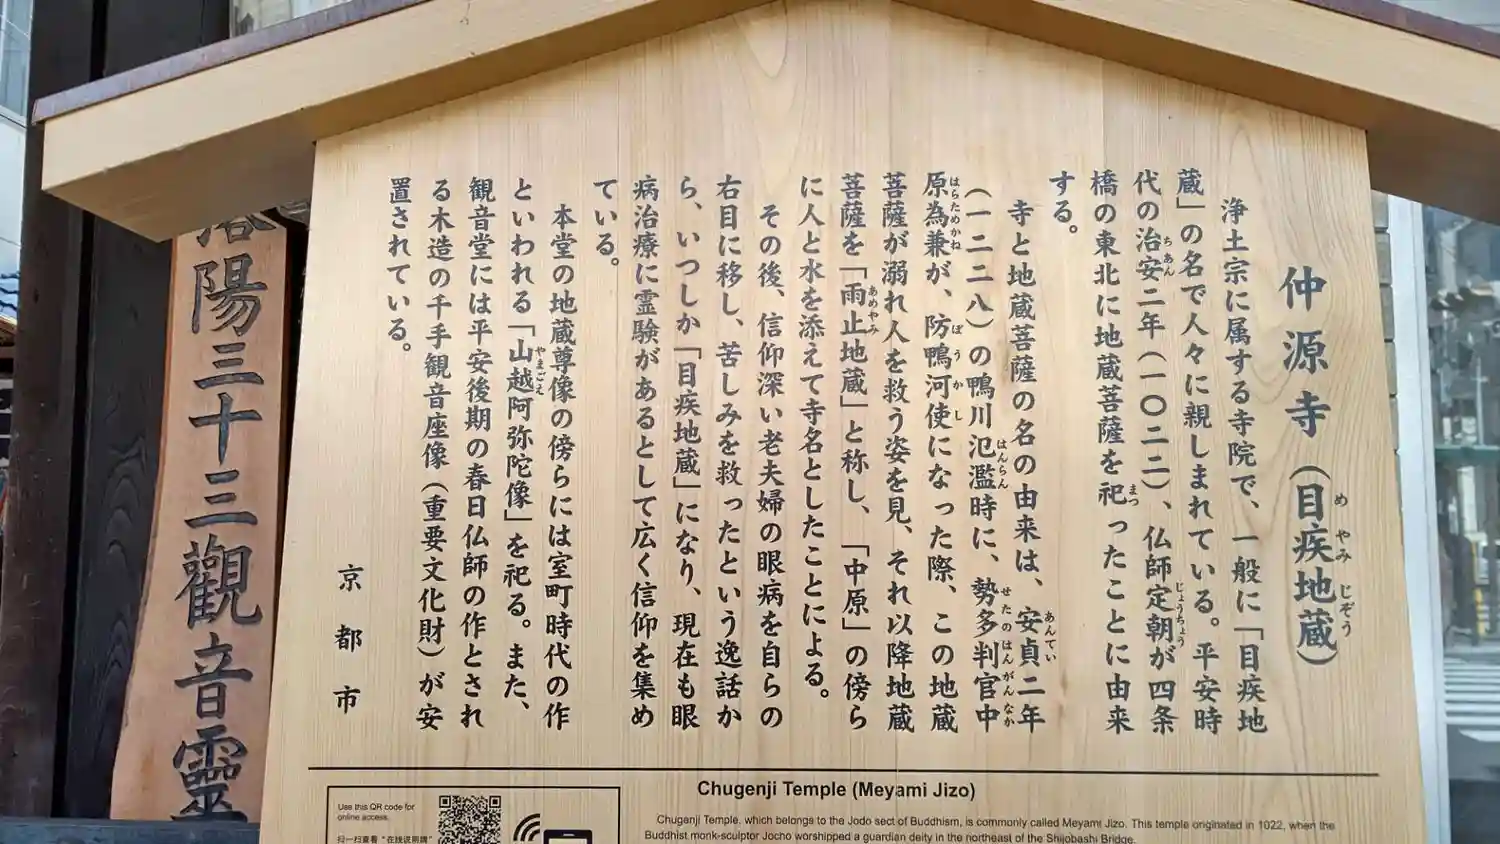 仲源寺（目疾地蔵）
めやみじぞう
浄土宗に属する寺院で、一般に「目疾地
蔵」の名で人々に親しまれている。平安時
代の治安二年（一〇二二）、仏師定朝が四条
ちあん
じょうちょう
橋の東北に地蔵菩薩を祀ったことに由来
まつ
する。
寺と地蔵菩薩の名の由来は、安貞二年
あんてい
（一二二八）の鴨川氾濫時に、勢多判官中
はんらん
せたのはんがんなか
原為兼が、防鴨河使になった際、この地蔵
はらためかね
ぼうかし
菩薩が溺れ人を救う姿を見、それ以降地蔵
菩薩を「雨止地蔵」と称し、「中原」の傍ら
あめやみ
に人と水を添えて寺名としたことによる。
その後、信仰深い老夫婦の眼病を自らの
右目に移し、苦しみを救ったという逸話か
ら、いつしか「目疾地蔵」になり、現在も眼
病治療に霊験があるとして広く信仰を集め
ている。
本堂の地蔵尊像の傍らには室町時代の作
といわれる「山越阿弥陀像」を祀る。また、
やまごえ
観音堂には平安後期の春日仏師の作とされ
る木造の千手観音座像（重要文化財）が安
置されている。
京都市
洛陽三十三觀音靈
Chugenji Temple (Meyami Jizo)
Chugenji Temple, which belongs to the Jodo sect of Buddhism, is commonly called Meyami Jizo. This temple originated in 1022, when the
Buddhist monk-sculptor Jocho worshipped a guardian deity in the northeast of the Shijobashi Bridge.
Use this QR code for
online access.
扫一扫查看"在线说明牌"